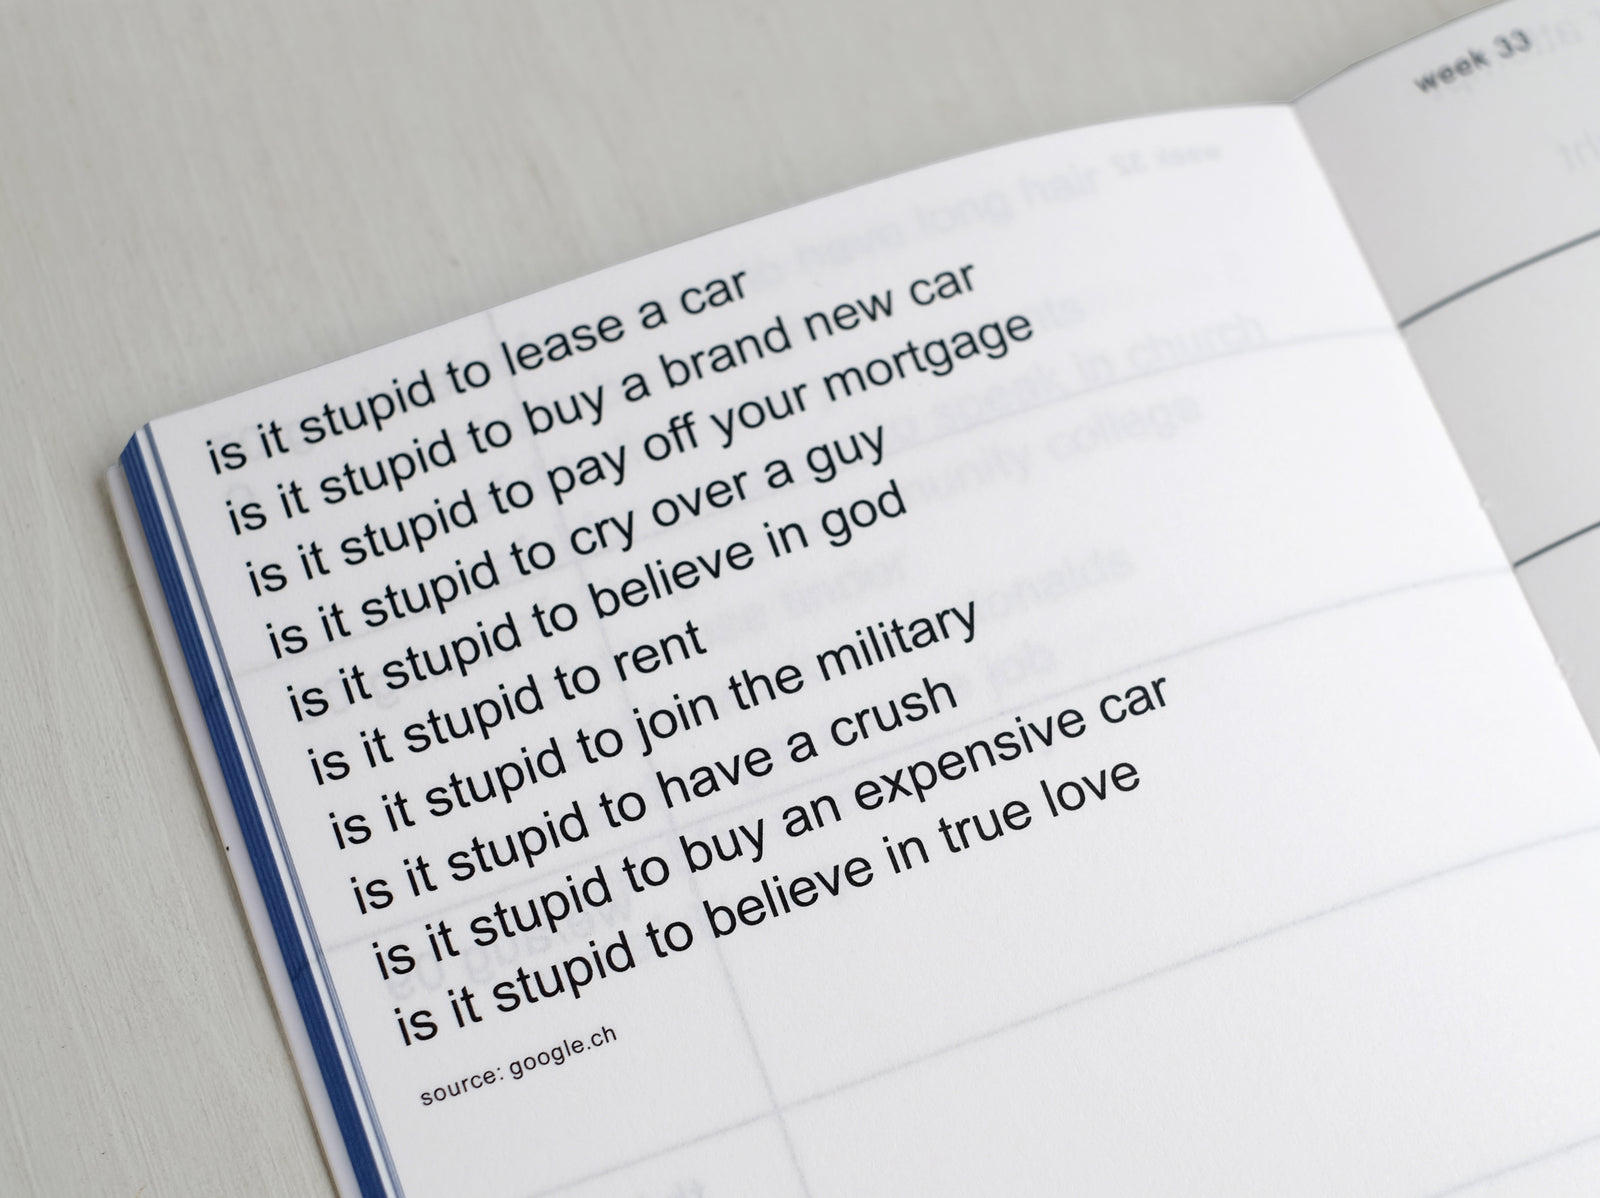 is it stupid to lease a car
is it stupid to buy a brand new car
is it stupid to pay off your mortgage
is it stupid to cry over a guy
is it stupid to believe in god
is it stupid to rent
is it stupid to join the military
is it stupid to have a crush
is it stupid to buy an expensive car
is it stupid to believe in true love
source: google.ch
week 33